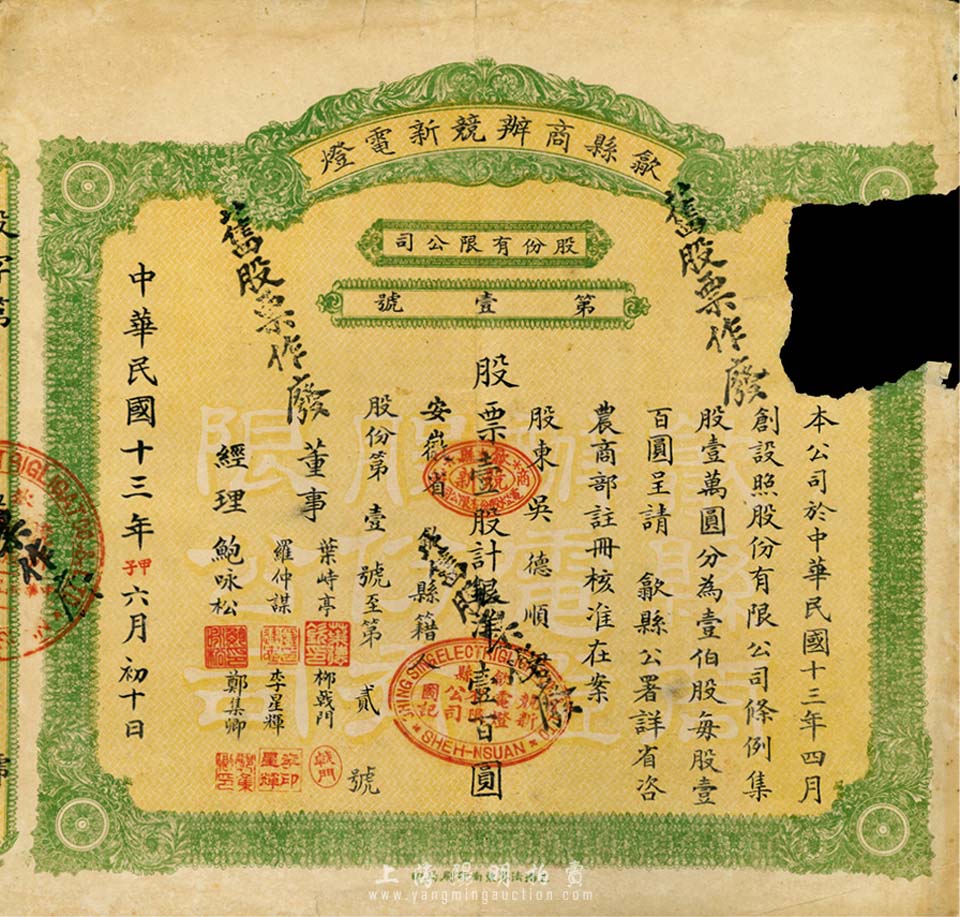 歙縣商辦競新電燈
股份有限公司
第壹號
本公司於中華民國十三年四月
創設照股份有限公司條例集
股壹萬圓分為壹伯股每股壹
百圓呈請 歙縣公署詳省咨
農商部註冊核准在案
股東 吳德順
股票壹股計銀洋壹百圓
安徽省 歙縣籍
股份第壹號至第貳號
董事 葉峙亭 柳戟門
羅仲謀 李星輝
經理 鮑咏松 鄭集卿
中華民國十三年甲子六月初十日
舊股票作廢
舊股票作廢
競新電燈
公司
圖記
SHING SING ELECTRIC LIGHT CO
SHEH-NSUAN
戟門
上海陽明拍賣
www.yangmingauction.com